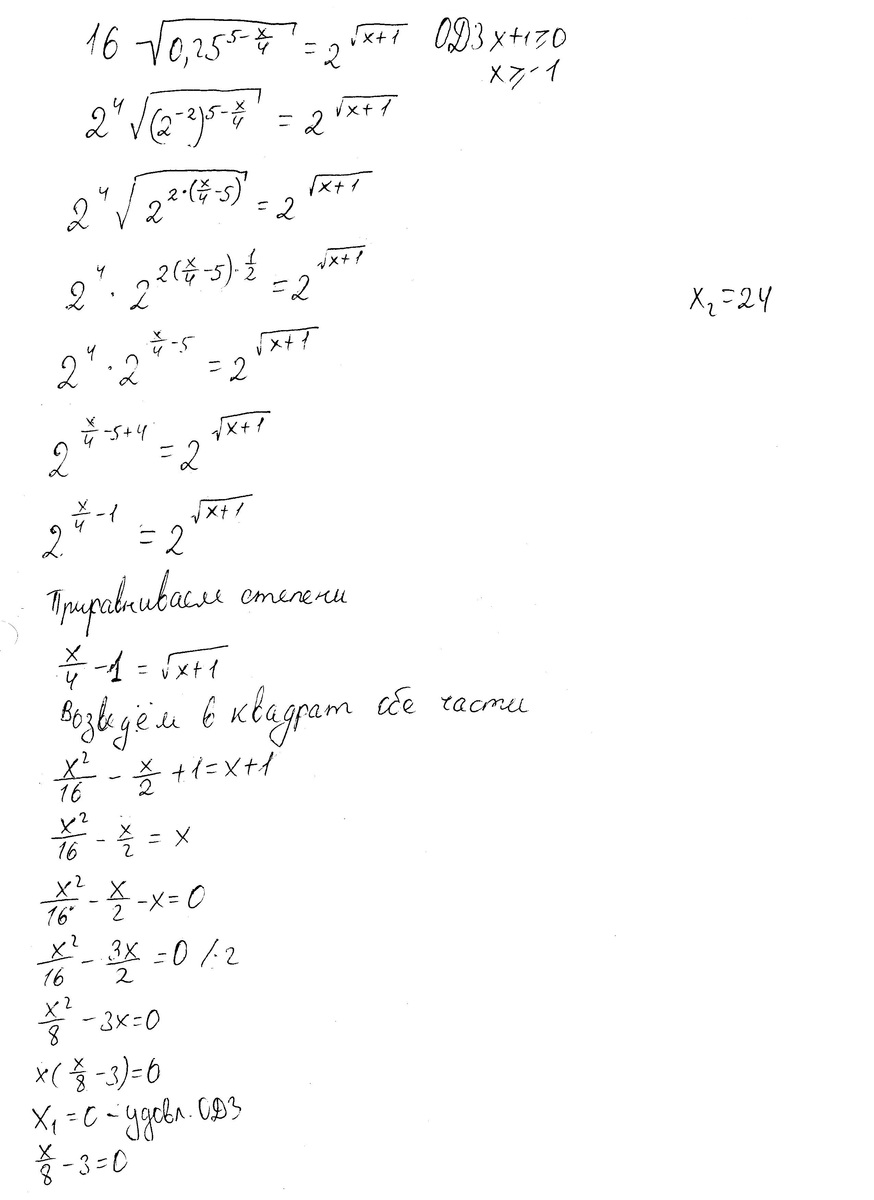 16 √(0,25^(5-x/4)) = 2^(√(x+1)) ОДЗ x+1≥0
x≥-1
2^4 √((2^(-2))^(5-x/4)) = 2^(√(x+1))
2^4 √(2^(2·(x/4-5))) = 2^(√(x+1))
2^4 · 2^(2(x/4-5)·1/2) = 2^(√(x+1))
x₂=24
2^4 · 2^(x/4-5) = 2^(√(x+1))
2^(x/4-5+4) = 2^(√(x+1))
2^(x/4-1) = 2^(√(x+1))
Приравниваем степени
x/4 -1 = √(x+1)
Возведём в квадрат обе части
x²/16 - x/2 +1=x+1
x²/16 - x/2 = x
x²/16 - x/2 -x=0
x²/16 - 3x/2 =0 /·2
x²/8 -3x=0
x(x/8 -3)=0
x₁=0 - удовл. ОДЗ
x/8 -3=0